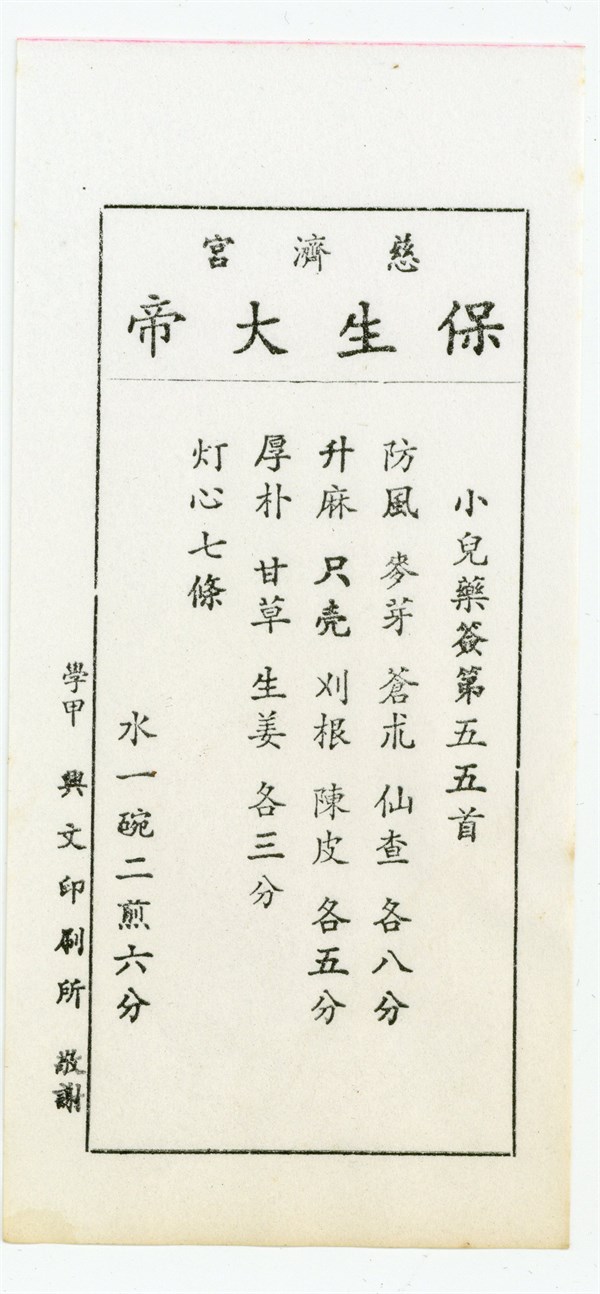 慈濟宮
保生大帝
小兒藥簽第五五首
防風 麥芽 蒼朮 仙查 各八分
升麻 只壳 刈根 陳皮 各五分
厚朴 甘草 生姜 各三分
灯心七條
水一碗二煎六分
學甲 興文印刷所 敬謝